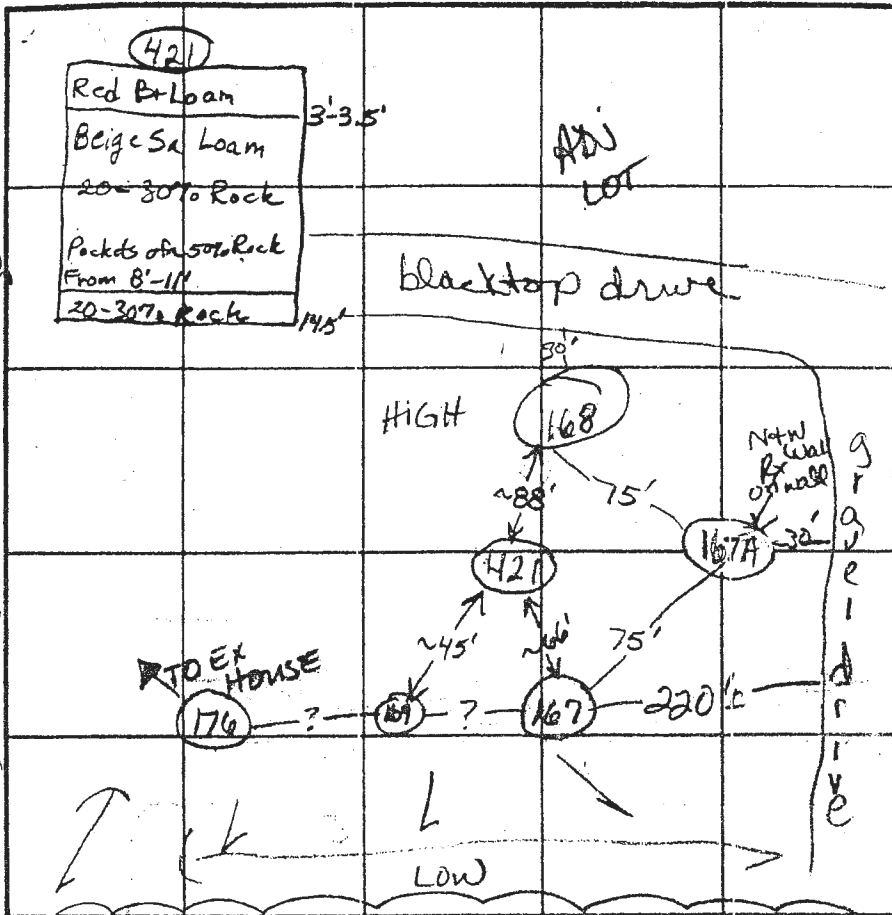 421
Red Br Loam
3'-3.5'
Beige Sa Loam
20-30% Rock
Pockets of ~50% Rock
From 8'-11'
20-30% Rock
14.5'
ADJ
LOT
blacktop drive
30'
HIGH
168
~88'
75'
N+W
Wall
on wall
167A
30'
gravel drive
421
~45'
~66'
75'
TO EX
HOUSE
176
?
169
?
167
220'
LOW